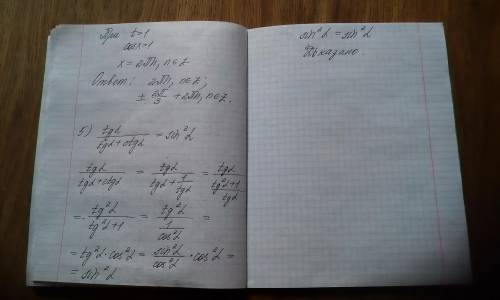 При t=1
cosx=1
x = 2πn, n∈Z
Ответ: 2πn, n∈Z;
± 2π/3 + 2πn, n∈Z.
5) tgα/(tgα+ctgα) = sin²α
tgα/(tgα+ctgα) = tgα/(tgα+1/tgα) = tgα/((tg²α+1)/tgα)
= tg²α/(tg²α+1) = tg²α/(1/cos²α) =
= tg²α·cos²α = sin²α/cos²α · cos²α =
= sin²α
sin²α = sin²α
Доказано.